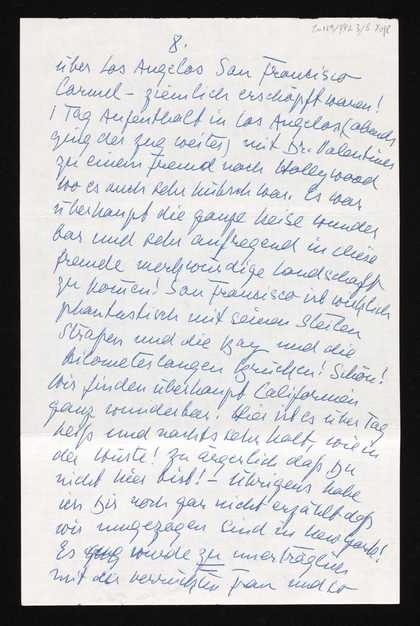 8.
über Los Angelos San Francisco
Carmel – ziemlich erschöpft waren!
1 Tag Aufenthalt in Los Angelos (abends
ging der Zug weiter) mit Dr. Valentiner
zu einem Freund nach Hollywood
wo es auch sehr hübsch war. Es war
überhaupt die ganze Reise wunder
bar und sehr aufregend in diese
fremde merkwürdige Landschaft
zu komen! San Francisco ist wirklich
phantastisch mit seinen steilen
Straßen und die Bay und die
kilometerlangen Brücken! Schön!
Wir finden überhaupt Californien
ganz wunderbar. Hier ist es über Tag
heiß und nachts sehr kalt wie in
der Wüste! Zu ärgerlich daß Du
nicht hier bist! – Übrigens habe
ich Dir noch gar nicht erzählt daß
wir umgezogen sind in New York!
Es wurde zu unerträglich
mit der verrückten Frau und so